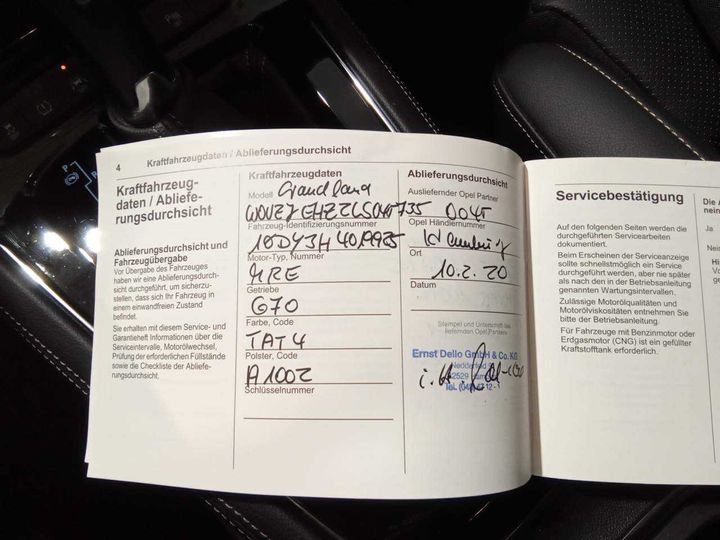 4
Kraftfahrzeugdaten / Ablieferungsdurchsicht
Kraftfahrzeug-
daten / Abliefe-
rungsdurchsicht
Ablieferungsdurchsicht und
Fahrzeugübergabe
Vor Übergabe des Fahrzeuges
haben wir eine Ablieferungsdurch-
sicht durchgeführt, um sicherzu-
stellen, dass sich Ihr Fahrzeug in
einem einwandfreien Zustand
befindet.
Sie erhalten mit diesem Service- und
Garantieheft Informationen über die
Serviceintervalle, Motorölwechsel,
Prüfung der erforderlichen Füllstände
sowie die Checkliste der Abliefe-
rungsdurchsicht.
Kraftfahrzeugdaten
Modell Grandland
Fahrzeug-Identifizierungsnummer
Motor-Typ, Nummer
MRE
Getriebe
G70
Farbe, Code
TAT4
Polster, Code
A100Z
Schlüsselnummer
Ablieferungsdurchsicht
Ausliefernder Opel Partner
Opel Händlernummer
Ort
10.2.20
Datum
Stempel und Unterschrift des
liefernden Opel Partners
Ernst Dello GmbH & Co. KG
i.A.
Servicebestätigung
Auf den folgenden Seiten werden die
durchgeführten Servicearbeiten
dokumentiert.
Beim Erscheinen der Serviceanzeige
sollte schnellstmöglich ein Service
durchgeführt werden, aber nie später
als nach den in der Betriebsanleitung
genannten Wartungsintervallen.
Zulässige Motorölqualitäten und
Motorölviskositäten entnehmen Sie
bitte der Betriebsanleitung.
Für Fahrzeuge mit Benzinmotor oder
Erdgasmotor (CNG) ist ein gefüllter
Kraftstofftank erforderlich.
Die
Ja
P
R